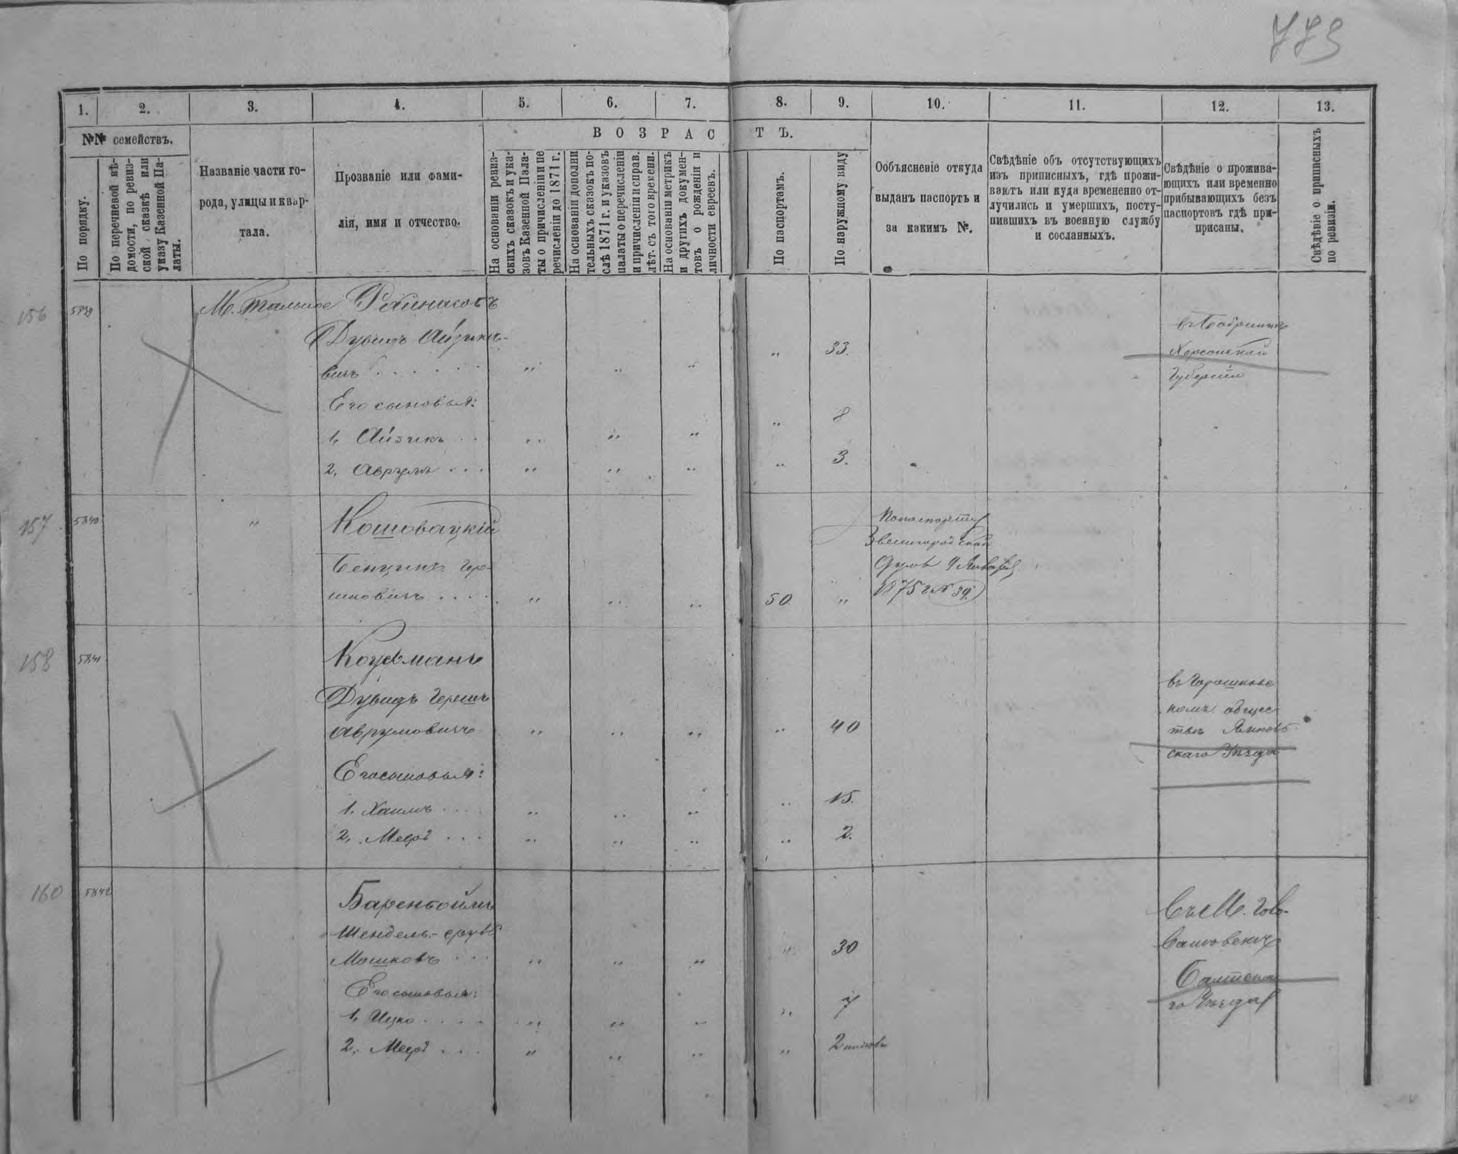 773
1. 2. 3. 4. 5. 6. 7. 8. 9. 10. 11. 12. 13.
№№ семействъ.
По порядку.
По перечневой вѣ-
домости, по ревиз-
ской сказкѣ или
указу Казенной Па-
латы.
Названіе части го-
рода, улицы и квар-
тала.
Прозваніе или фами-
лія, имя и отчество.
ВОЗРАСТЪ.
На основаніи ревиз-
скихъ сказокъ и ука-
зовъ Казенной Пала-
ты о причисленіи и пе
речисленіи до 1871 г.
На основаніи дополни
тельныхъ сказокъ по-
слѣ 1871 г. и указовъ
палаты о перечисленіи
и причисленіи и справ.
лѣт. съ того времени.
На основаніи метрик.
и другихъ докумен-
товъ о рожденіи и
личности евреевъ.
По паспортамъ.
По наружному виду
Ообъясненіе откуда
выданъ паспортъ и
за какимъ №.
Свѣдѣніе объ отсутствующихъ
изъ приписныхъ, гдѣ прожи-
ваютъ или куда временено от-
лучились и умершихъ, посту-
пившихъ въ военную службу
и сосланныхъ.
Свѣдѣніе о прожива-
ющихъ или временно
прибывающихъ безъ
паспортовъ гдѣ при-
писаны.
Свѣдѣніе о приписныхъ
по ревизіи.
156 5839 М. Тальное
Дувидъ Айзико-
вичъ . . . . . . " " " " 33.
Херсонской
Губерніи
Его сыновья:
1, Айзикъ . . " " " " 8
2, Аврумъ . . . " " " " 3.
157 5840 " Кошовацкій
Бенціонъ Гер-
шковичъ . . . . " " " 50 "
По паспорту
Звенигородской
1875 г. № 39
158 5841 Кауфманъ
Дувидъ Гершъ
Аврумовичъ " " " " 40
номъ общес-
твѣ
скаго Уѣзда
Его сыновья:
1, Хаимъ . . . . " " " " 15.
2, Мееръ . . . " " " " 2.
160 5842 Баренбоймъ
Шендель-
Мошковъ . . . " " " " 30
Съ М. Голо-
Балтска
го Уѣзда
Его сыновья:
1, Ицко . . . . " " " " 7
2, Мееръ . . . " " " " 2